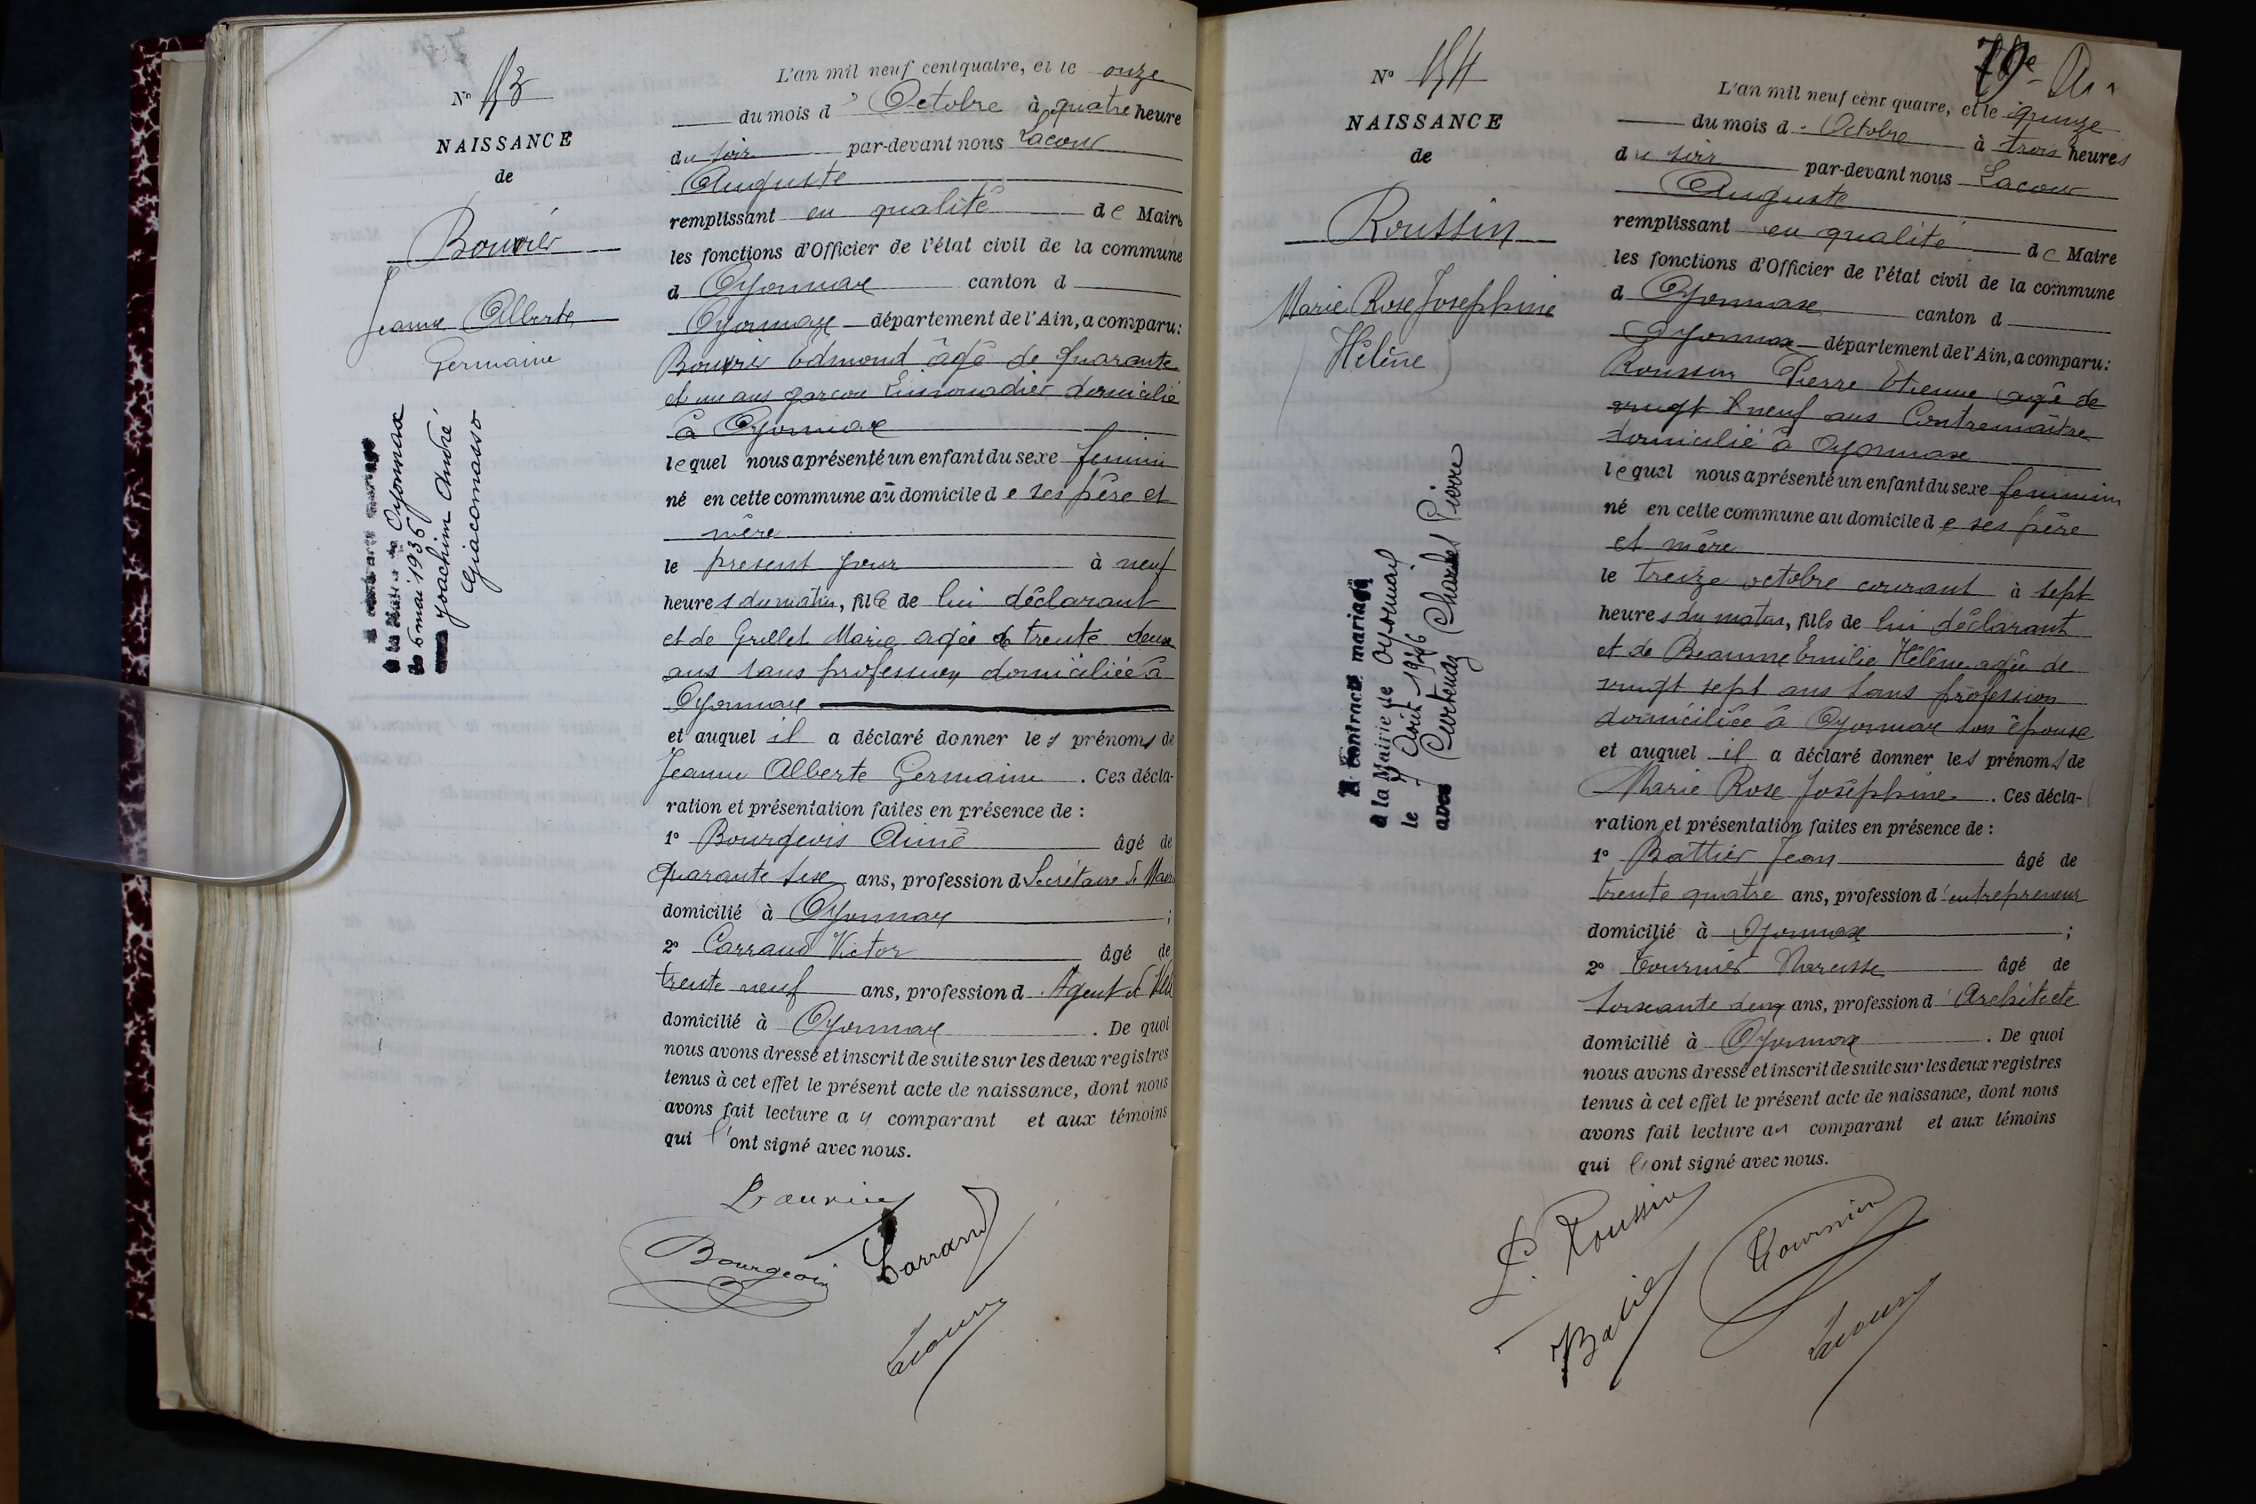 Nº 153
NAISSANCE
de
Bouvier
Jeanne Alberte
Germaine
A contracté mariage
à la Mairie de Oyonnax
le 6 mai 1936
avec Joachim André
Giacomasso
L'an mil neuf cent quatre, et le onze
du mois d'Octobre à quatre heure
du soir par-devant nous Lacour
Auguste
remplissant en qualité de Maire
les fonctions d'Officier de l'état civil de la commune
d Oyonnax canton d
Oyonnax département de l'Ain, a comparu:
Bouvier Edmond âgé de quarante
et un ans garçon Limonadier domicilié
à Oyonnax
lequel nous a présenté un enfant du sexe feminin
né en cette commune au domicile de ses père et
mère
le présent jour à neuf
heures du matin, fille de lui déclarant
et de Grillet Marie agée de trente deux
ans sans profession domiciliée à
Oyonnax
et auquel il a déclaré donner les prénoms de
Jeanne Alberte Germaine. Ces décla-
ration et présentation faites en présence de :
1º Bourgeois Aimé âgé de
quarante six ans, profession d Secrétaire de Mairie
domicilié à Oyonnax ;
2º Carraud Victor âgé de
trente neuf ans, profession d'Agent de Ville
domicilié à Oyonnax. De quoi
nous avons dressé et inscrit de suite sur les deux registres
tenus à cet effet le présent acte de naissance, dont nous
avons fait lecture au comparant et aux témoins
qui l'ont signé avec nous.
Bouvier
Bourgeois Carraud
Lacour
79e
Nº 154
NAISSANCE
de
Roussin
Marie Rose Josephine
Hélène
A contracté mariage
à la Mairie de Oyonnax
le 7 Août 1926
avec Curtenaz Charles Pierre
L'an mil neuf cent quatre, et le quinze
du mois d'Octobre à trois heures
du soir par-devant nous Lacour
Auguste
remplissant en qualité de Maire
les fonctions d'Officier de l'état civil de la commune
d Oyonnax canton d
Oyonnax département de l'Ain, a comparu:
Roussin Pierre Etienne agé de
vingt neuf ans Contremaître
domicilié à Oyonnax
lequel nous a présenté un enfant du sexe feminin
né en cette commune au domicile de ses père
et mère
le treize octobre courant à sept
heures du matin, fille de lui déclarant
et de Beaume Emilie Hélène agée de
vingt sept ans sans profession
domiciliée à Oyonnax son épouse
et auquel il a déclaré donner les prénoms de
Marie Rose Joséphine. Ces décla-
ration et présentation faites en présence de :
1º Battier Jean âgé de
trente quatre ans, profession d'entrepreneur
domicilié à Oyonnax ;
2º Tournier Narcisse âgé de
soixante deux ans, profession d'Architecte
domicilié à Oyonnax. De quoi
nous avons dressé et inscrit de suite sur les deux registres
tenus à cet effet le présent acte de naissance, dont nous
avons fait lecture au comparant et aux témoins
qui l'ont signé avec nous.
P. Roussin
Tournier
Lacour